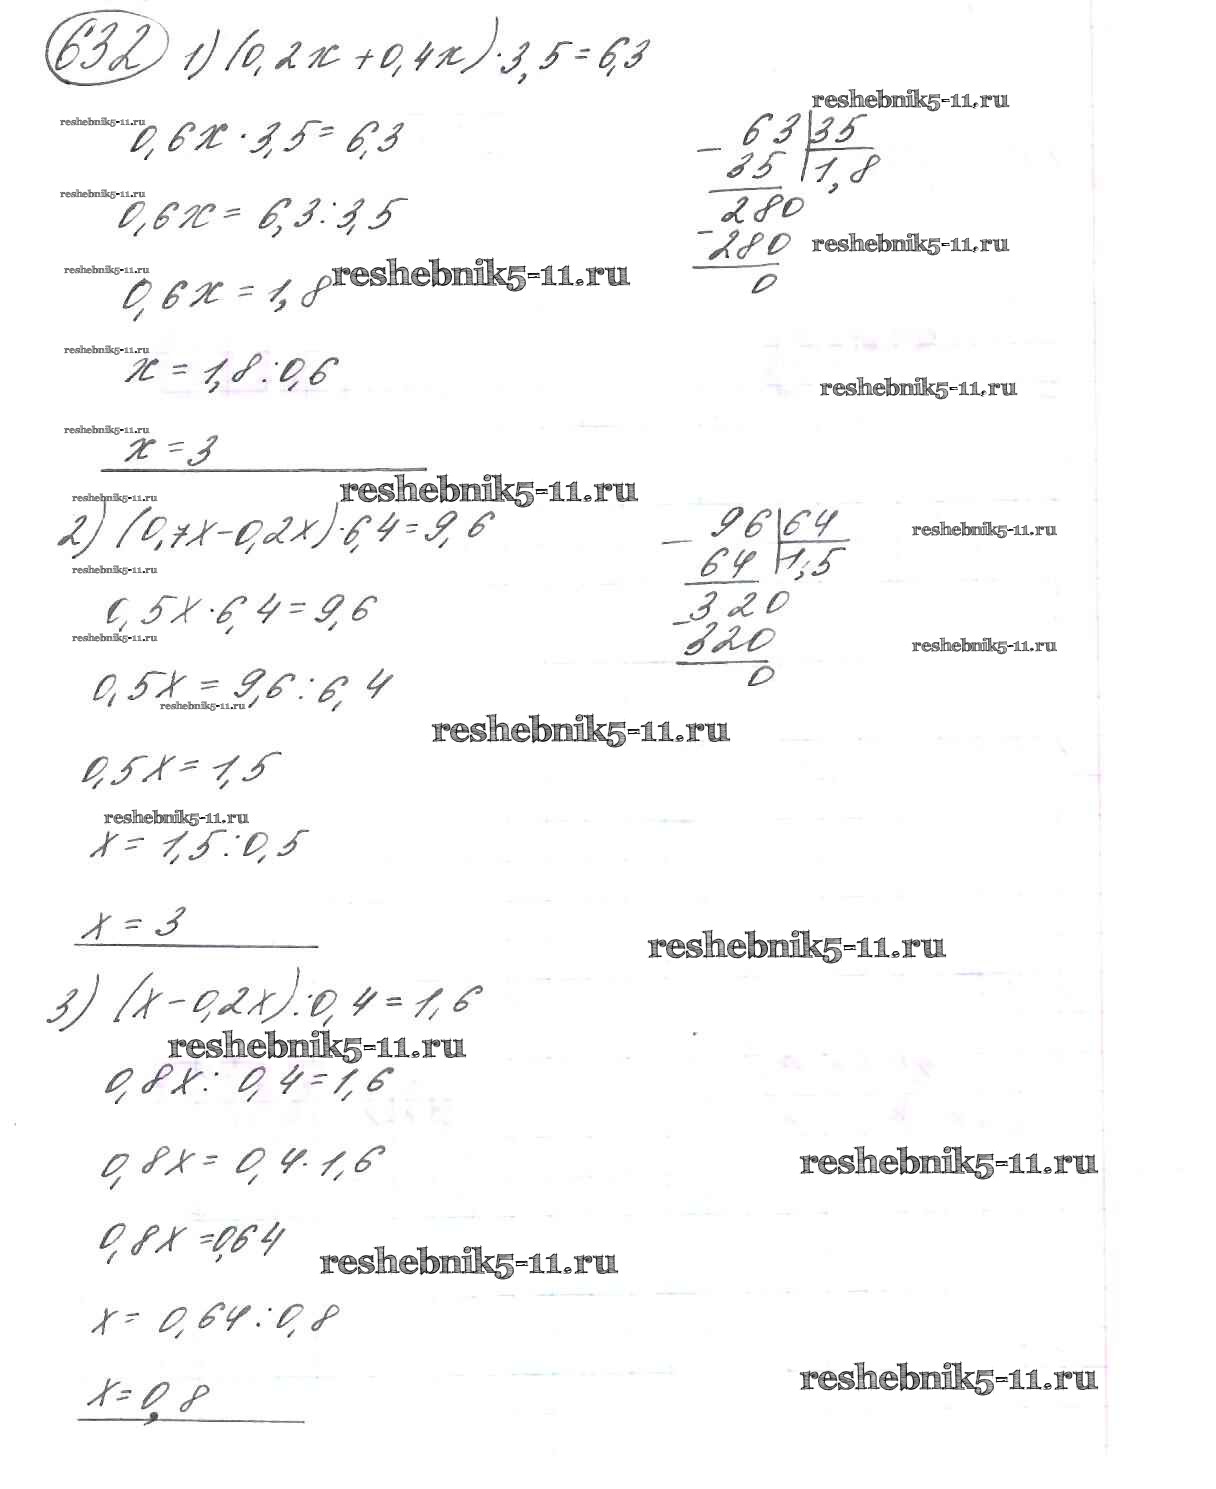 632 1) (0,2x + 0,4x) · 3,5 = 6,3
reshebnik5-11.ru
reshebnik5-11.ru
0,6x · 3,5 = 6,3
63 | 35
- 35 | 1,8
reshebnik5-11.ru
0,6x = 6,3 : 3,5
280
- 280
reshebnik5-11.ru
0
reshebnik5-11.ru
reshebnik5-11.ru
0,6x = 1,8
reshebnik5-11.ru
x = 1,8 : 0,6
reshebnik5-11.ru
reshebnik5-11.ru
x = 3
reshebnik5-11.ru
reshebnik5-11.ru
2) (0,7x - 0,2x) · 6,4 = 9,6
96 | 64
- 64 | 1,5
reshebnik5-11.ru
reshebnik5-11.ru
0,5x · 6,4 = 9,6
320
- 320
0
reshebnik5-11.ru
reshebnik5-11.ru
0,5x = 9,6 : 6,4
reshebnik5-11.ru
reshebnik5-11.ru
0,5x = 1,5
reshebnik5-11.ru
x = 1,5 : 0,5
x = 3
reshebnik5-11.ru
3) (x - 0,2x) : 0,4 = 1,6
reshebnik5-11.ru
0,8x : 0,4 = 1,6
0,8x = 0,4 · 1,6
reshebnik5-11.ru
0,8x = 0,64
reshebnik5-11.ru
x = 0,64 : 0,8
reshebnik5-11.ru
x = 0,8